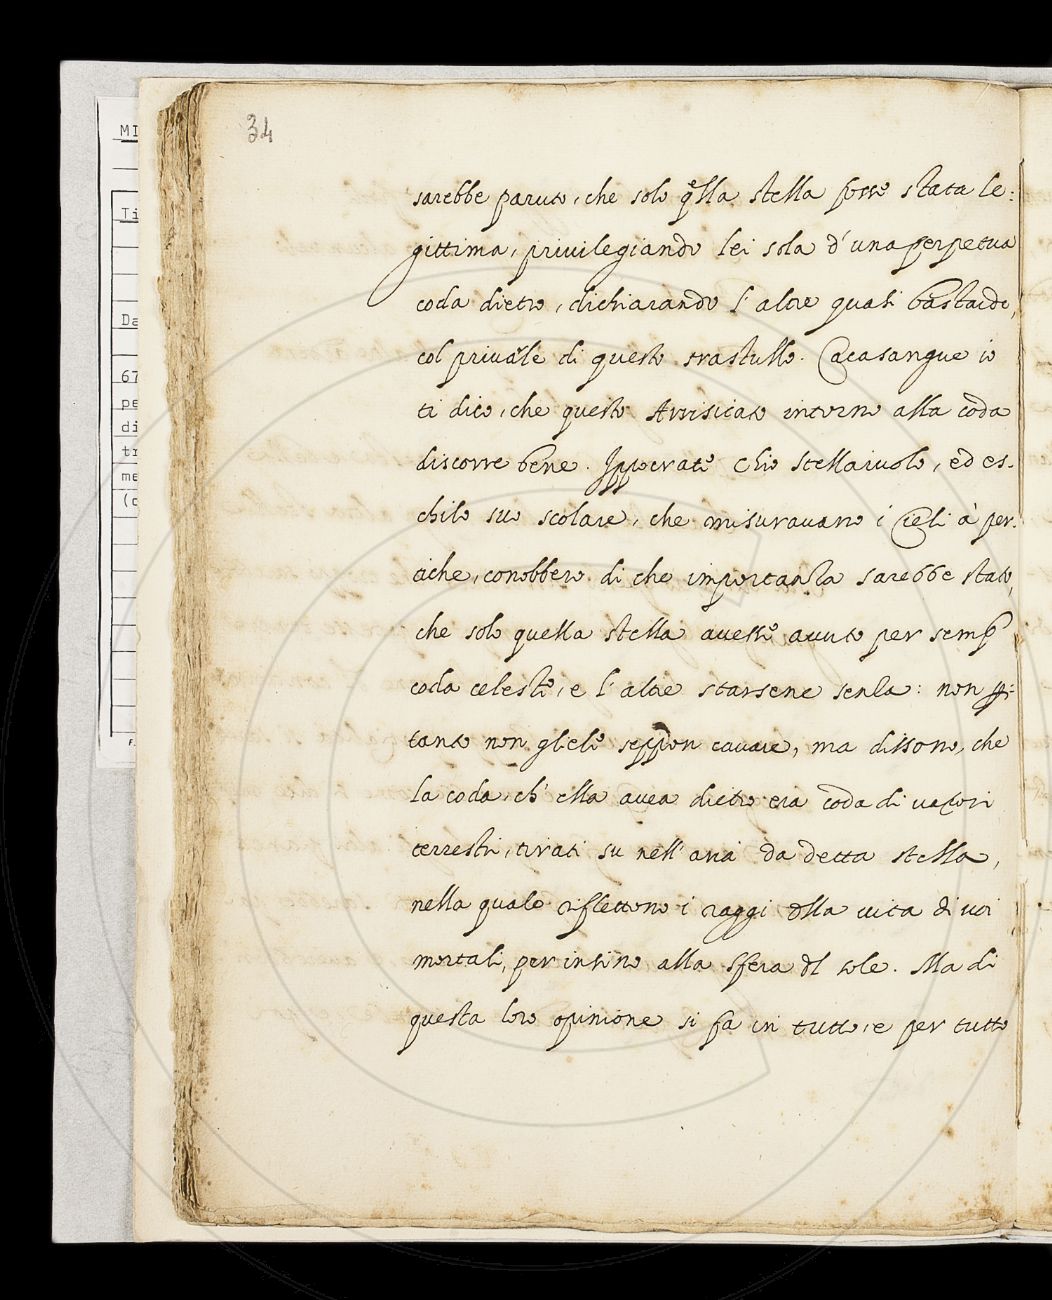 34
sarebbe paruto, che solo q̃lla stella fosse stata le:
gittima, priuilegiando lei sola d'una perpetua
coda dietro, dichiarando l'altre quasi bastarde,
col priuarle di questo trastullo. Cacasangue io
ti dico, che questo Arrisicato intorno alla coda
discorre bene. Ippocrate Chio stellaiuolo, ed es-
chilo suo scolare, che misurauano i Cieli à per-
tiche, conobbero di che importanza sarebbe stato,
che solo quella stella auesse auuto per semp
coda celeste, e l'altre starsene senza: non p-
tanto non gliele seppon cauare, ma dissono, che
la coda, ch'ella auea dietro era coda di uapori
terrestri, tirati su nell'aria da detta stella,
nella quale riflettono i raggi dlla uita di uoi
mortali, per insino alla sfera dl sole. Ma di
questa loro opinione si fa in tutto, e per tutto
MI
Ti
Da
67
pe
di
tr
me
(c